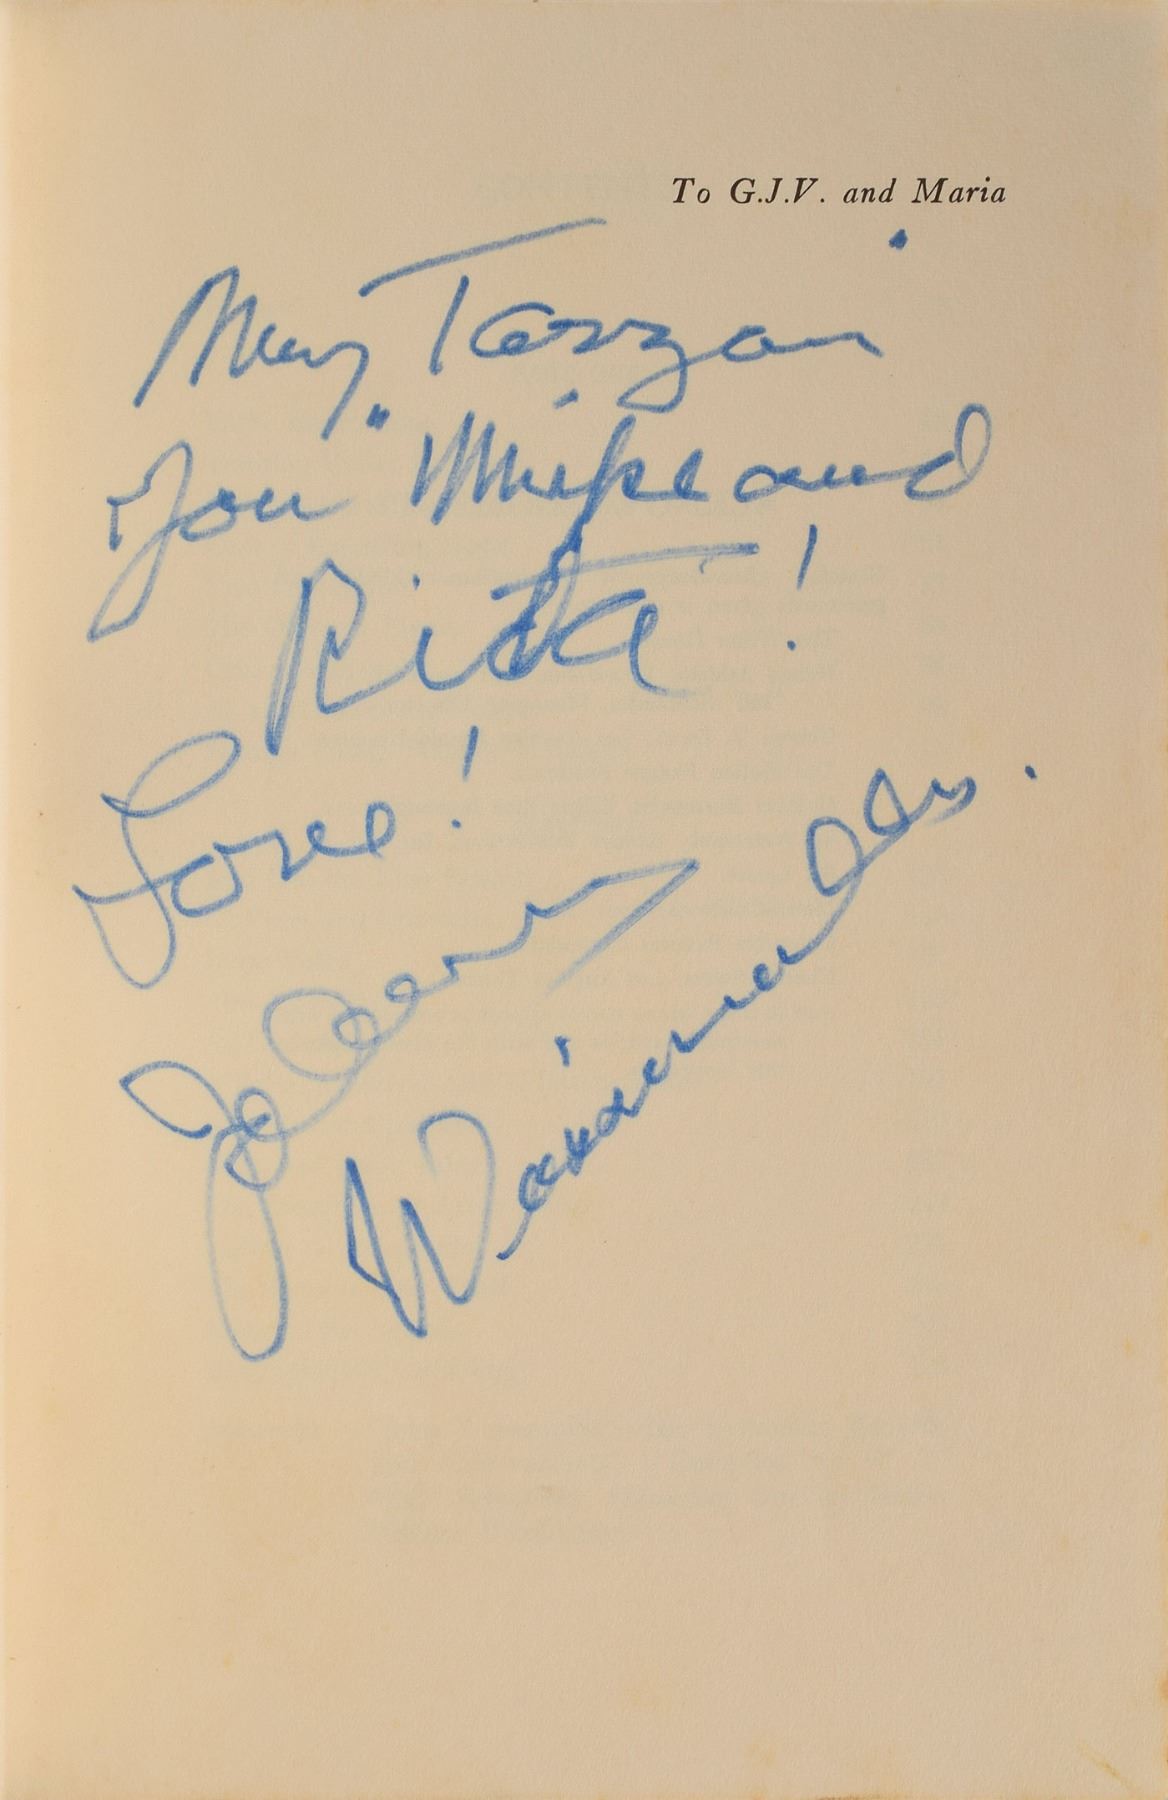 To G.J.V. and Maria
May Tarzan
You "Mike and
Rita!
Love!
Johnny
Weissmuller.